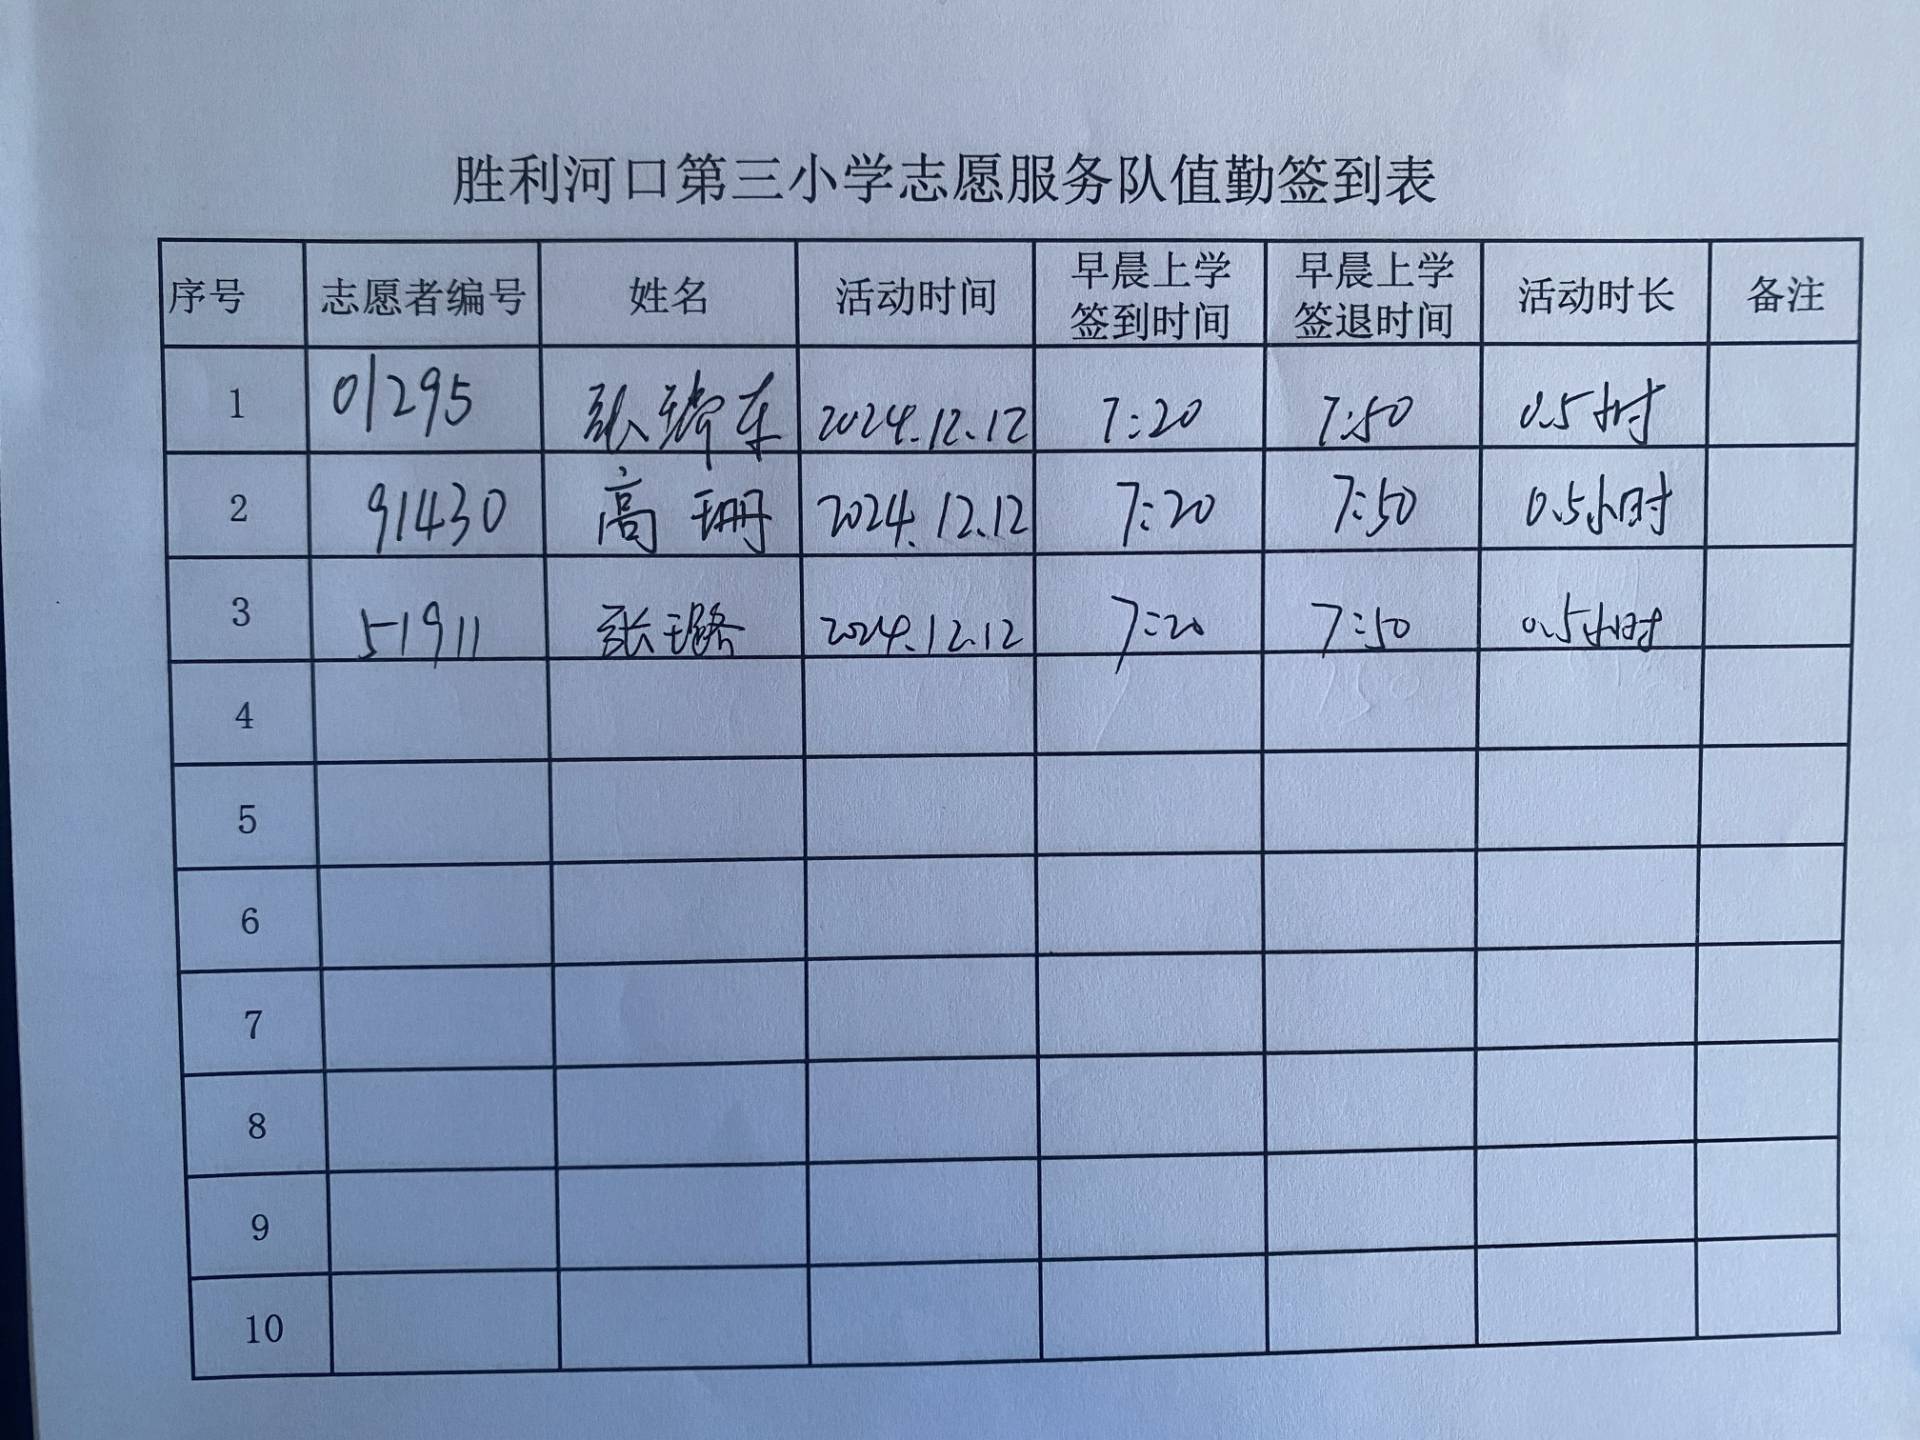 胜利河口第三小学志愿服务队值勤签到表
序号 志愿者编号 姓名 活动时间 早晨上学签到时间 早晨上学签退时间 活动时长 备注
1 01295 张瑞东 2024.12.12 7:20 7:50 0.5小时
2 91430 高珊 2024.12.12 7:20 7:50 0.5小时
3 51911 张璐 2024.12.12 7:20 7:50 0.5小时
4
5
6
7
8
9
10